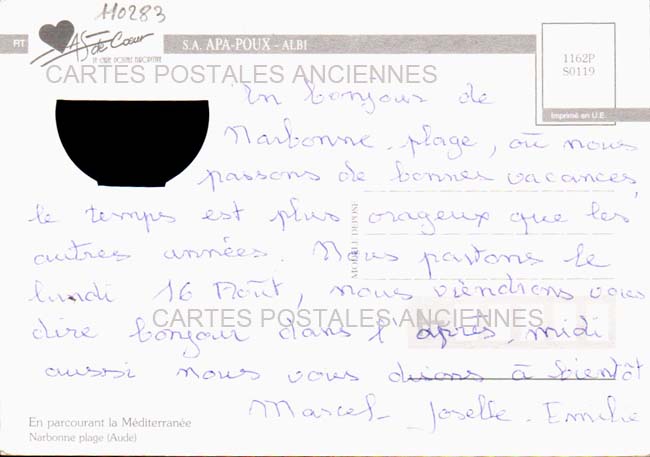 110283
RT
AS de Cœur
LA CARTE POSTALE EUROPÉENNE
S.A. APA-POUX - ALBI
1162P
S0119
Imprimé en U.E.
CARTES POSTALES ANCIENNES
Un bonjour de
Narbonne plage, où nous
passons de bonnes vacances,
le temps est plus orageux que les
autres années. Nous partons le
lundi 16 Août, nous viendrons vous
dire bonjour dans l'après, midi
aussi nous vous disons à bientôt
Marcel - Joselle - Emilie
MODÈLE DÉPOSÉ
CARTES POSTALES ANCIENNES
En parcourant la Méditerranée
Narbonne plage (Aude)